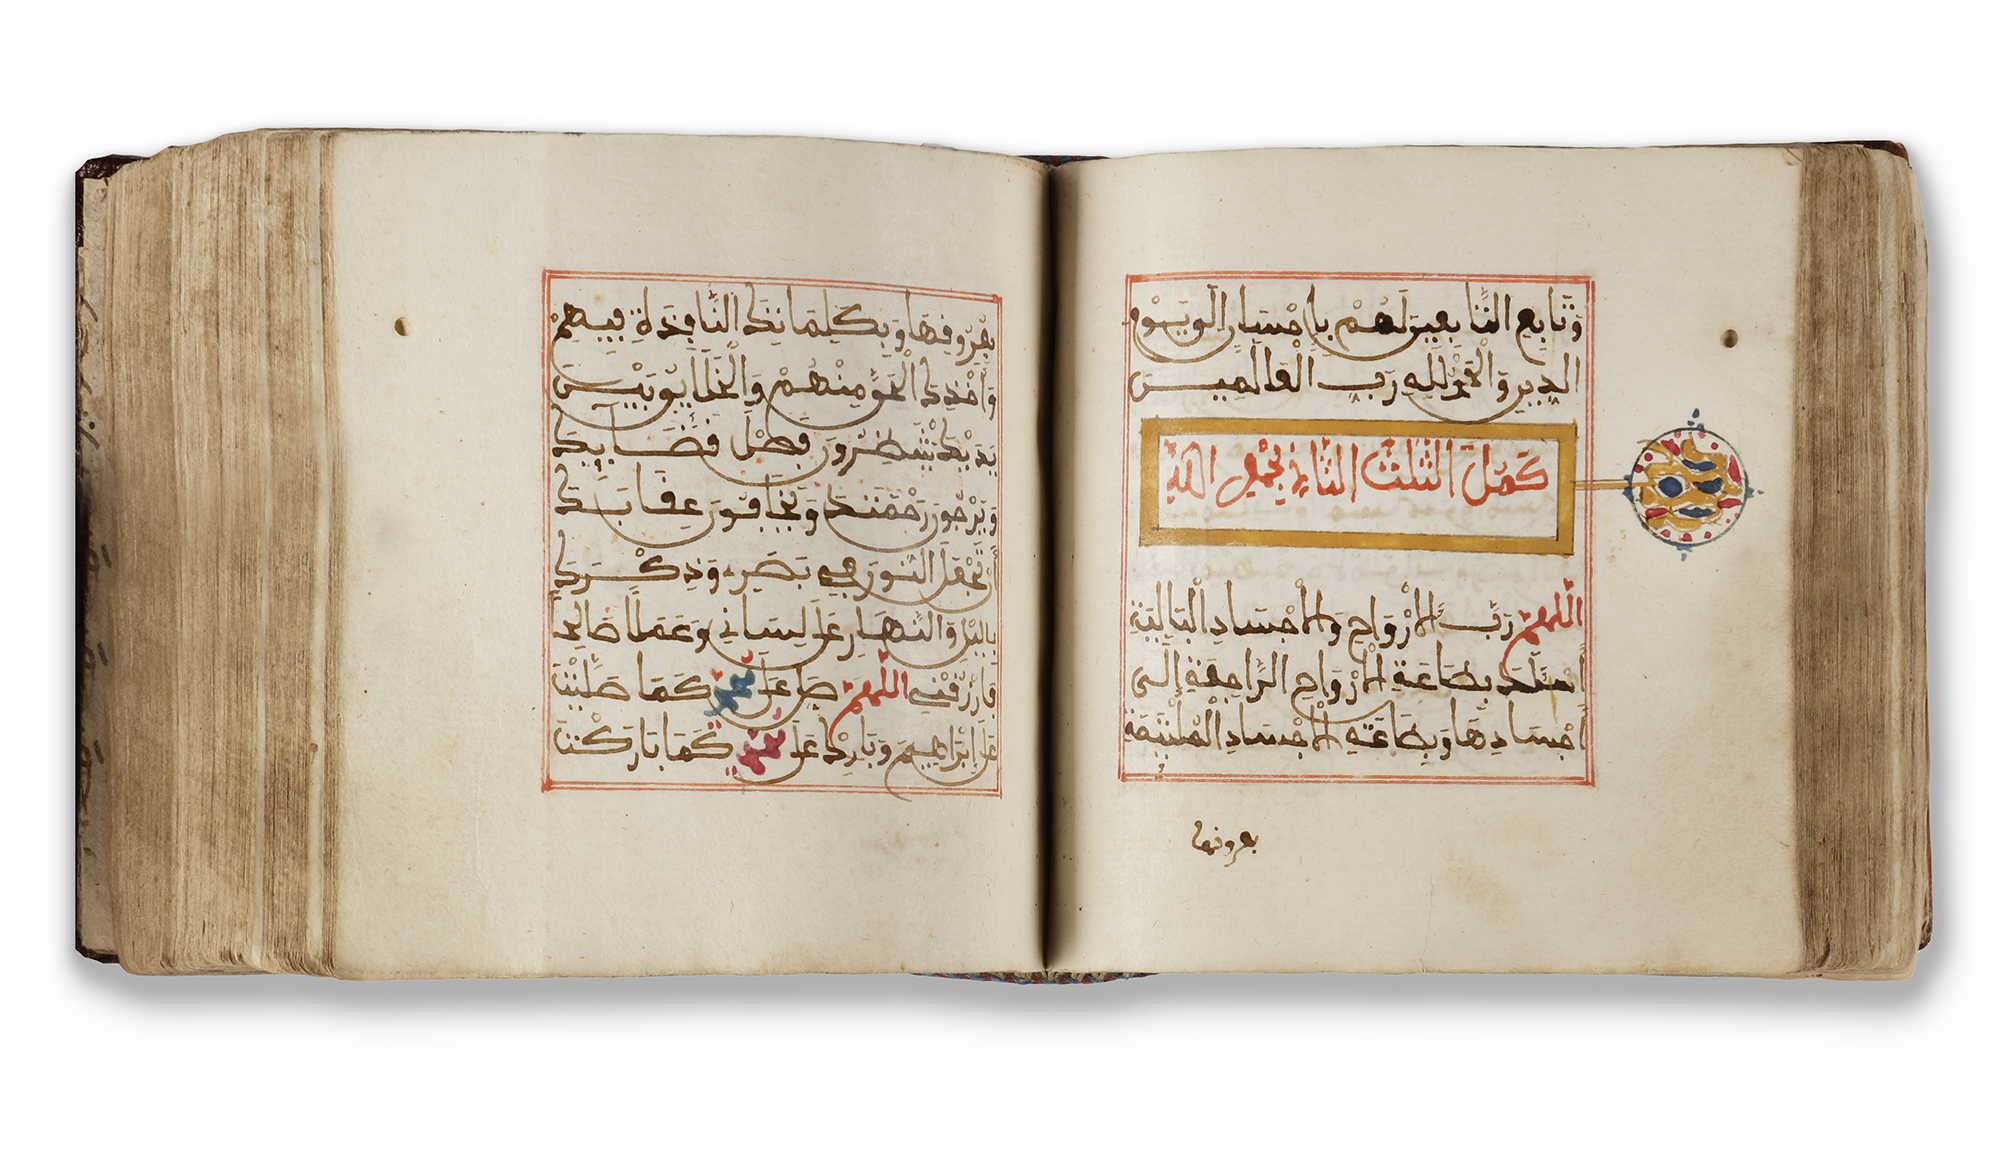 وَتَابِعِ التَّابِعِينَ لَهُمْ بِإِحْسَانٍ إِلَى يَوْمِ
الدِّينِ وَالْحَمْدُ لِلَّهِ رَبِّ الْعَالَمِينَ
كَمُلَ الثُّلُثُ الثَّانِي بِحَمْدِ اللَّهِ
اللَّهُمَّ رَبَّ الْأَرْوَاحِ وَالْأَجْسَادِ الْبَالِيَةِ
أَسْئَلُكَ بِطَاعَةِ الْأَرْوَاحِ الرَّاجِعَةِ إِلَى
أَجْسَادِهَا وَبِطَاعَةِ الْأَجْسَادِ الْمُلْتَئِمَةِ
بعروقها
بِعُرُوقِهَا وَبِكَلِمَاتِكَ النَّافِذَةِ فِيهِمْ
وَأَخْذِكَ الْحَقَّ مِنْهُمْ وَالْخَلَائِقُ بَيْنَ
يَدَيْكَ يَنْتَظِرُونَ فَصْلَ قَضَائِكَ
وَيَرْجُونَ رَحْمَتَكَ وَيَخَافُونَ عِقَابَكَ
أَنْ تَجْعَلَ النُّورَ فِي بَصَرِي وَذِكْرَكَ
بِالَّيْلِ وَالنَّهَارِ عَلَى لِسَانِي وَعَمَلًا صَالِحًا
فَارْزُقْنِي اللَّهُمَّ صَلِّ عَلَى مُحَمَّدٍ كَمَا صَلَّيْتَ
عَلَى إِبْرَاهِيمَ وَبَارِكْ عَلَى مُحَمَّدٍ كَمَا بَارَكْتَ